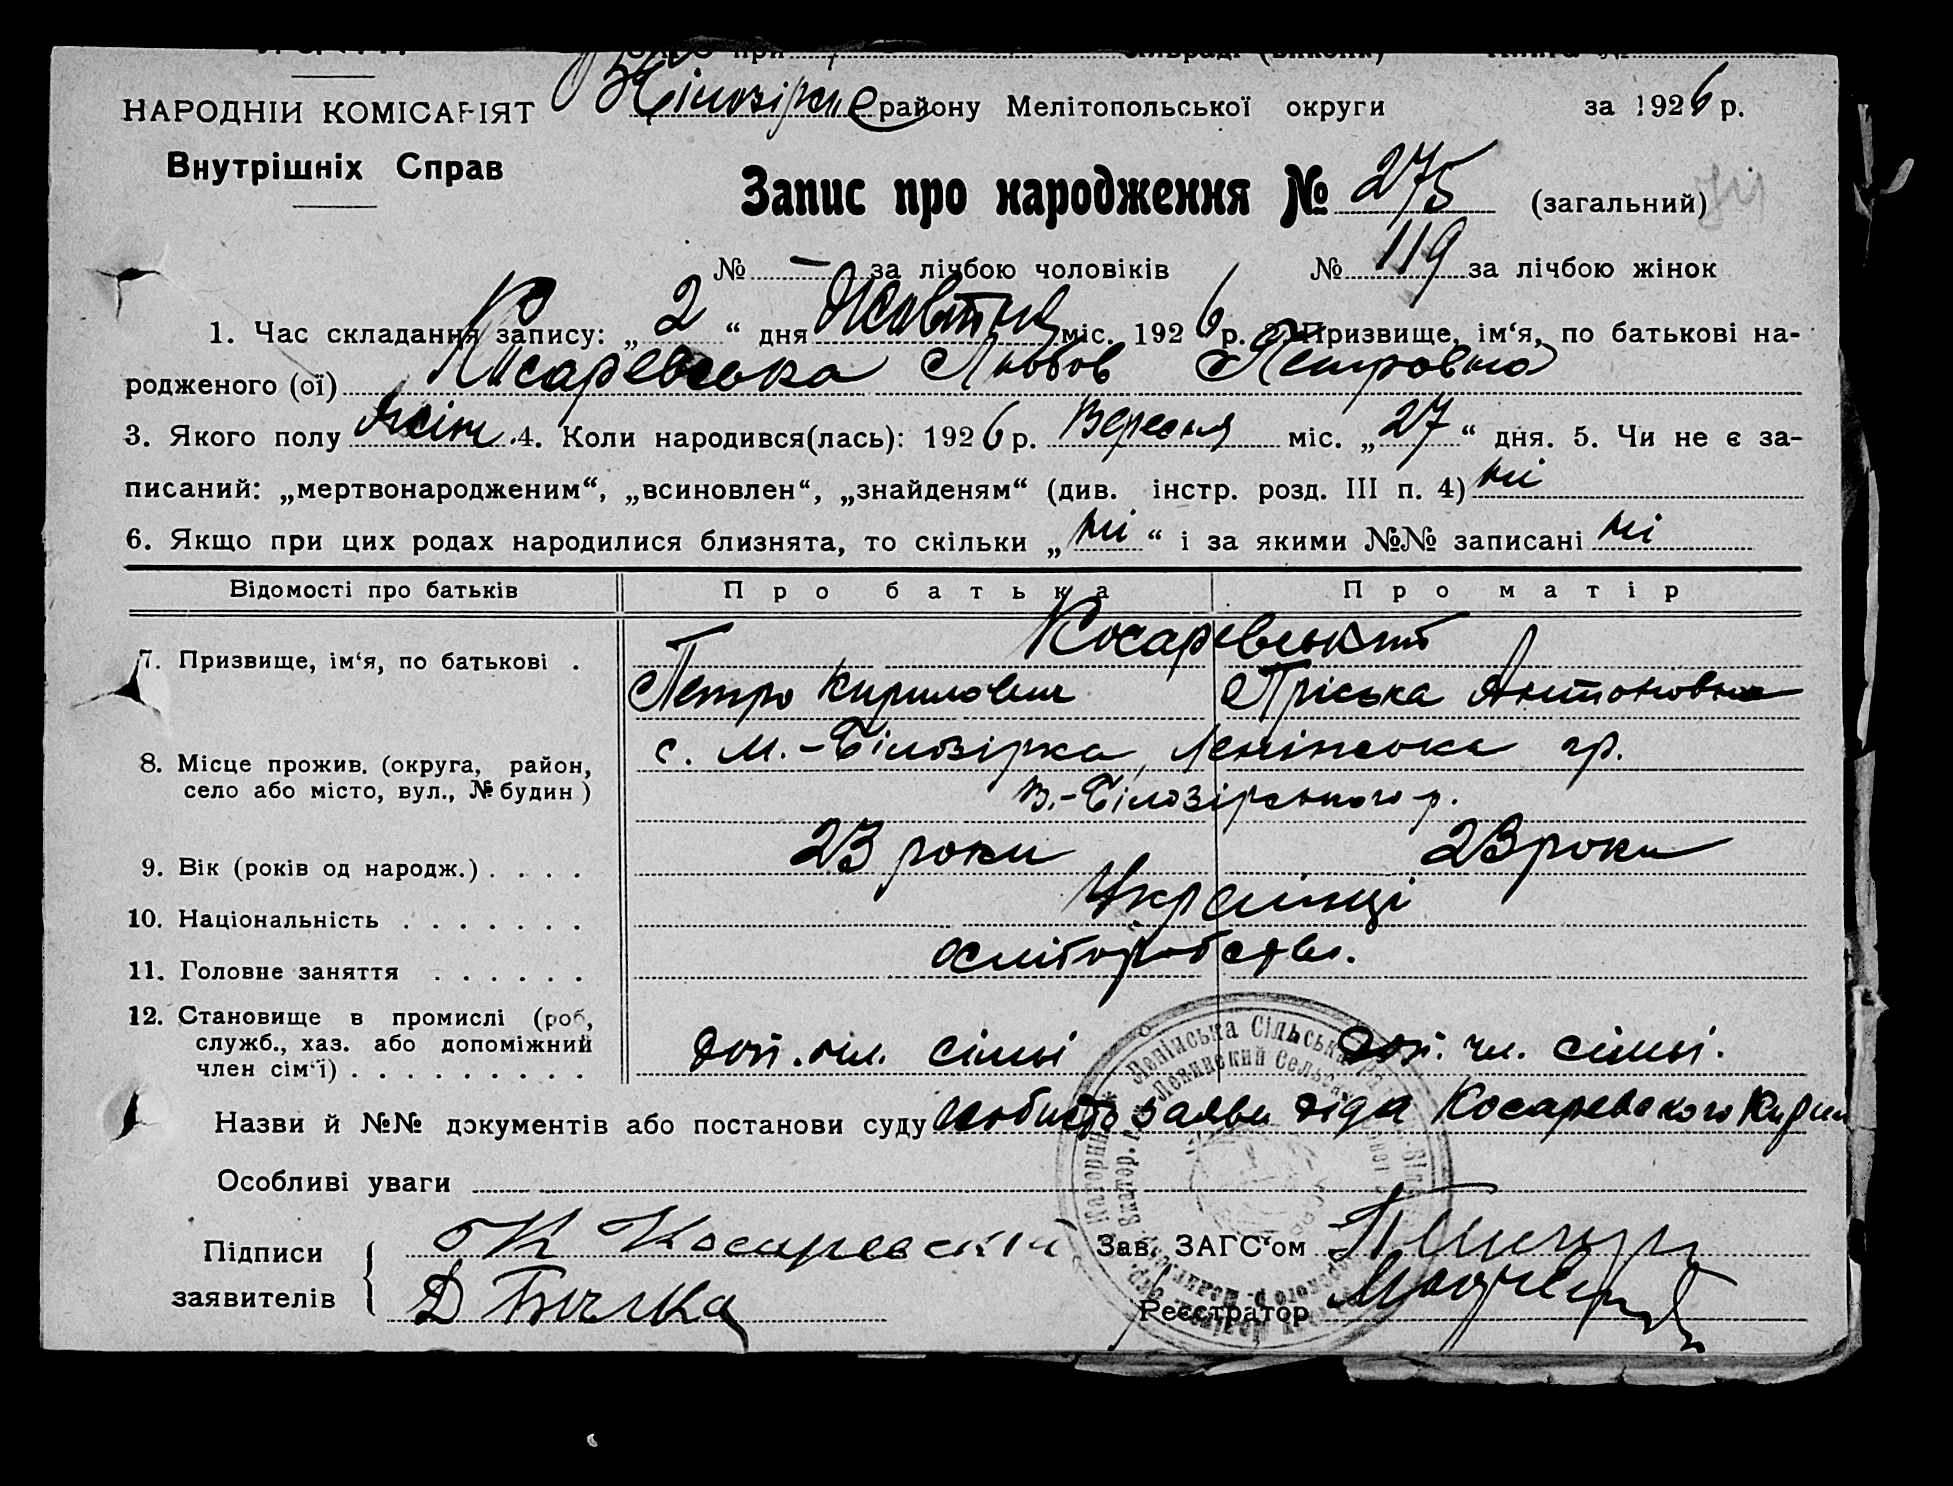 НАРОДНІЙ КОМІСАРІЯТ
Внутрішніх Справ
району Мелітопольської округи за 1926 р.
Запис про народження № 275 (загальний)
№ — за лічбою чоловіків № 119 за лічбою жінок
1. Час складання запису: „2“ дня Жовтня міс. 1926 р. 2. Призвище, ім‘я, по батькові на-
родженого (ої) Косаревська Любов Петровна
3. Якого полу жіноч. 4. Коли народився(лась): 1926 р. Вересня міс. „27“ дня. 5. Чи не є за-
писаний: „мертвонародженим“, „всиновлен“, „знайденям“ (див. інстр. розд. III п. 4) ні
6. Якщо при цих родах народилися близнята, то скільки „ні“ і за якими №№ записані ні
Відомості про батьків Про батька Про матір
7. Призвище, ім‘я, по батькові . Косаревські
Петро Кирилович Пріська Антоновна
8. Місце прожив. (округа, район, село або місто, вул., № будин) с. М.-Білозірка, Ленінська гр.
В.-Білозірського р.
9. Вік (років од народж.) . . . . 23 роки 23 роки
10. Національність . . . . . . . Українці
11. Головне заняття . . . . . . хліборобство.
12. Становище в промислі (роб, служб., хаз. або допоміжний член сім‘ї) . . . . . . . . . доп. чл. сімьі доп. чл. сімьі.
Назви й №№ документів або постанови суду заява діда Косаревского Кирил
Особливі уваги
Підписи заявителів К Косаревский
Зав. ЗАГС‘ом
Реєстратор
Ленінська Сільська
Ленинский Сельск